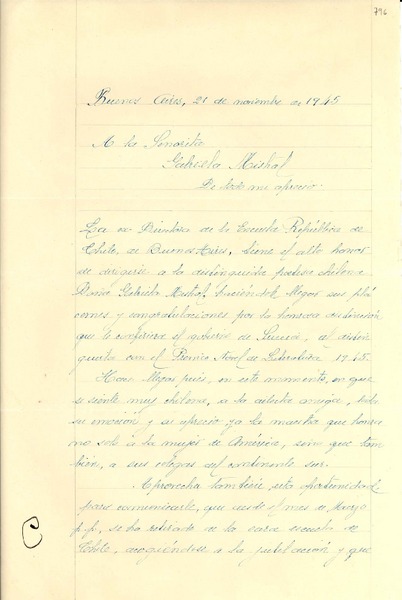 796
Buenos Aires, 21 de noviembre de 1945
A la Señorita
Gabriela Mistral
De todo mi aprecio:
La ex Directora de la Escuela República de
Chile, de Buenos Aires, tiene el alto honor
de dirigirse a la distinguida poetisa chilena
Doña Gabriela Mistral, haciéndole llegar sus plá
cemes y congratulaciones por la honrosa distinción
que le confiriera el gobierno de Suecia, al
con el Premio Nobel de Literatura 1945.
Hace llegar pues, en este momento, en que
se siente muy chilena, a la amiga, toda
su emoción y su aprecio por la maestra que honra
no solo a la mujer de América, sino que tam
bién, a sus colegas del continente sur.
Aprovecha también esta oportunidad
para comunicarle, que desde el mes de Marzo
p.p., se ha retirado de la escuela
Chile, acogiéndose a la jubilación y que